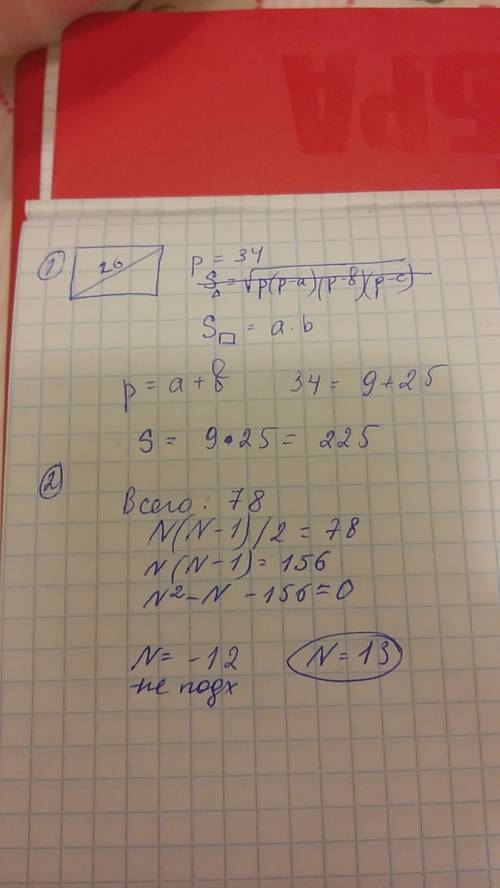 БРА
① 26 p = 34
S△ = √p(p-a)(p-b)(p-c)
S□ = a·b
p = a + b 34 = 9 + 25
S = 9·25 = 225
②
Всего: 78
N(N-1)/2 = 78
N(N-1) = 156
N² - N - 156 = 0
N = -12 N = 13
не подх